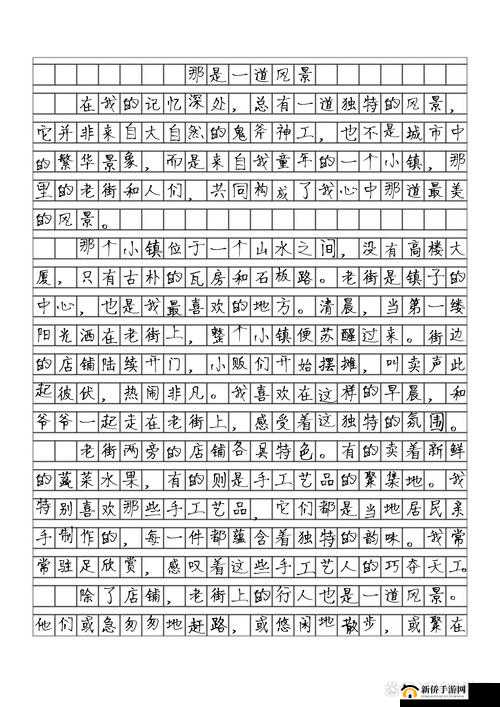 那是一道风景
在我的记忆深处，总有一道独特的风景，
它并非来自大自然的鬼斧神工，也不是城市中
的繁华景象，而是来自我童年的一个小镇，那
里的老街和人们，共同构成了我心中那道最美
的风景。
那个小镇位于一个山水之间，没有高楼大
厦，只有古朴的瓦房和石板路。老街是镇子的
中心，也是我最喜欢的地方。清晨，当第一缕
阳光洒在老街上，整个小镇便苏醒过来。街边
的店铺陆续开门，小贩们开始摆摊，叫卖声此
起彼伏，热闹非凡。我喜欢在这样的早晨，和
爷爷一起走在老街上，感受着这独特的氛围。
老街两旁的店铺各具特色。有的卖着新鲜
的蔬菜水果，有的则是手工艺品的聚集地。我
特别喜欢那些手工艺品，它们都是当地居民亲
手制作的，每一件都蕴含着独特的韵味。我常
常驻足欣赏，感叹着这些手工艺人的巧夺天工。
除了店铺，老街上的行人也是一道风景。
他们或急匆匆地赶路，或悠闲地散步，或聚在
新侨手游网